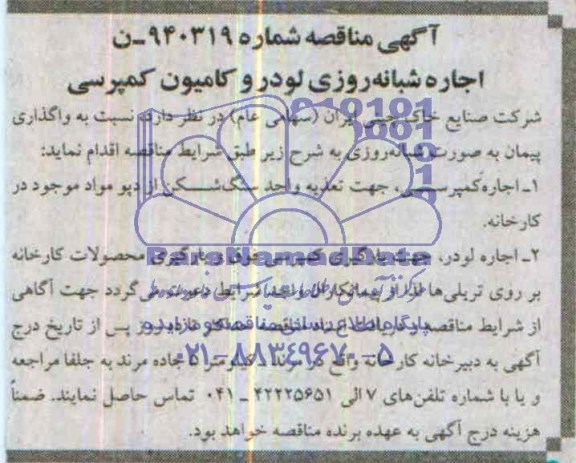 آگهی مناقصه شماره ۹۴۰۳۱۹-ن
اجاره شبانه‌روزی لودر و کامیون کمپرسی
شرکت صنایع خاک چینی ایران (سهامی عام) در نظر دارد، نسبت به واگذاری
پیمان به صورت شبانه‌روزی به شرح زیر طبق شرایط مناقصه اقدام نماید:
۱ـ اجاره کمپرسی، جهت تغذیه واحد سنگ‌شکن از دپو مواد موجود در
کارخانه.
۲ـ اجاره لودر، جهت بارگیری کمپرسی فوق و بارگیری محصولات کارخانه
بر روی تریلی‌ها لذا از پیمانکاران واجد شرایط دعوت می گردد جهت آگاهی
از شرایط مناقصه و دریافت اسناد مناقصه حداکثر روز پس از تاریخ درج
آگهی به دبیرخانه کارخانه واقع در مرند، کیلومتر جاده مرند به جلفا مراجعه
و یا با شماره تلفن‌های ۷ الی ۴۲۲۲۵۶۵۱ ـ ۰۴۱ تماس حاصل نمایند. ضمناً
هزینه درج آگهی به عهده برنده مناقصه خواهد بود.
ParsNamadData
پایگاه اطلاع رسانی مناقصه و مزایده
۰۲۱-۸۸۳۴۹۶۷۰-۵